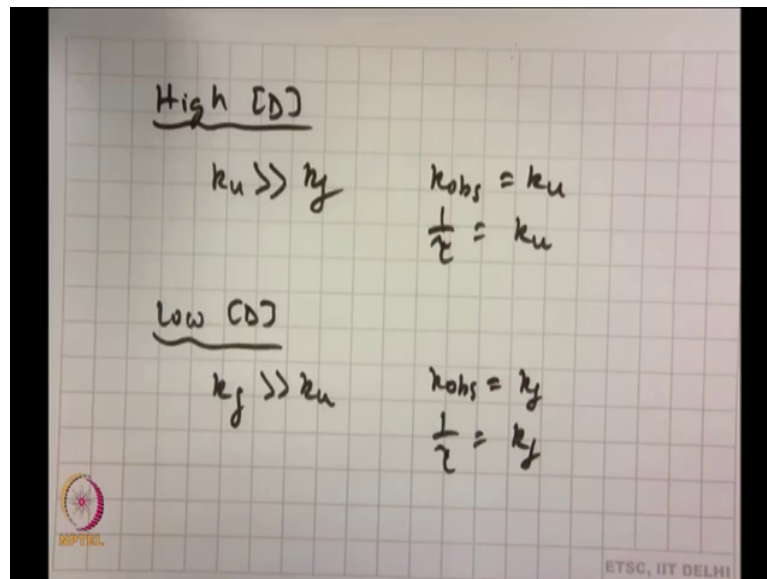 High [D]
ku >> kf
kobs = ku
1/τ = ku
Low [D]
kf >> ku
kobs = kf
1/τ = kf
NPTEL
ETSC, IIT DELHI